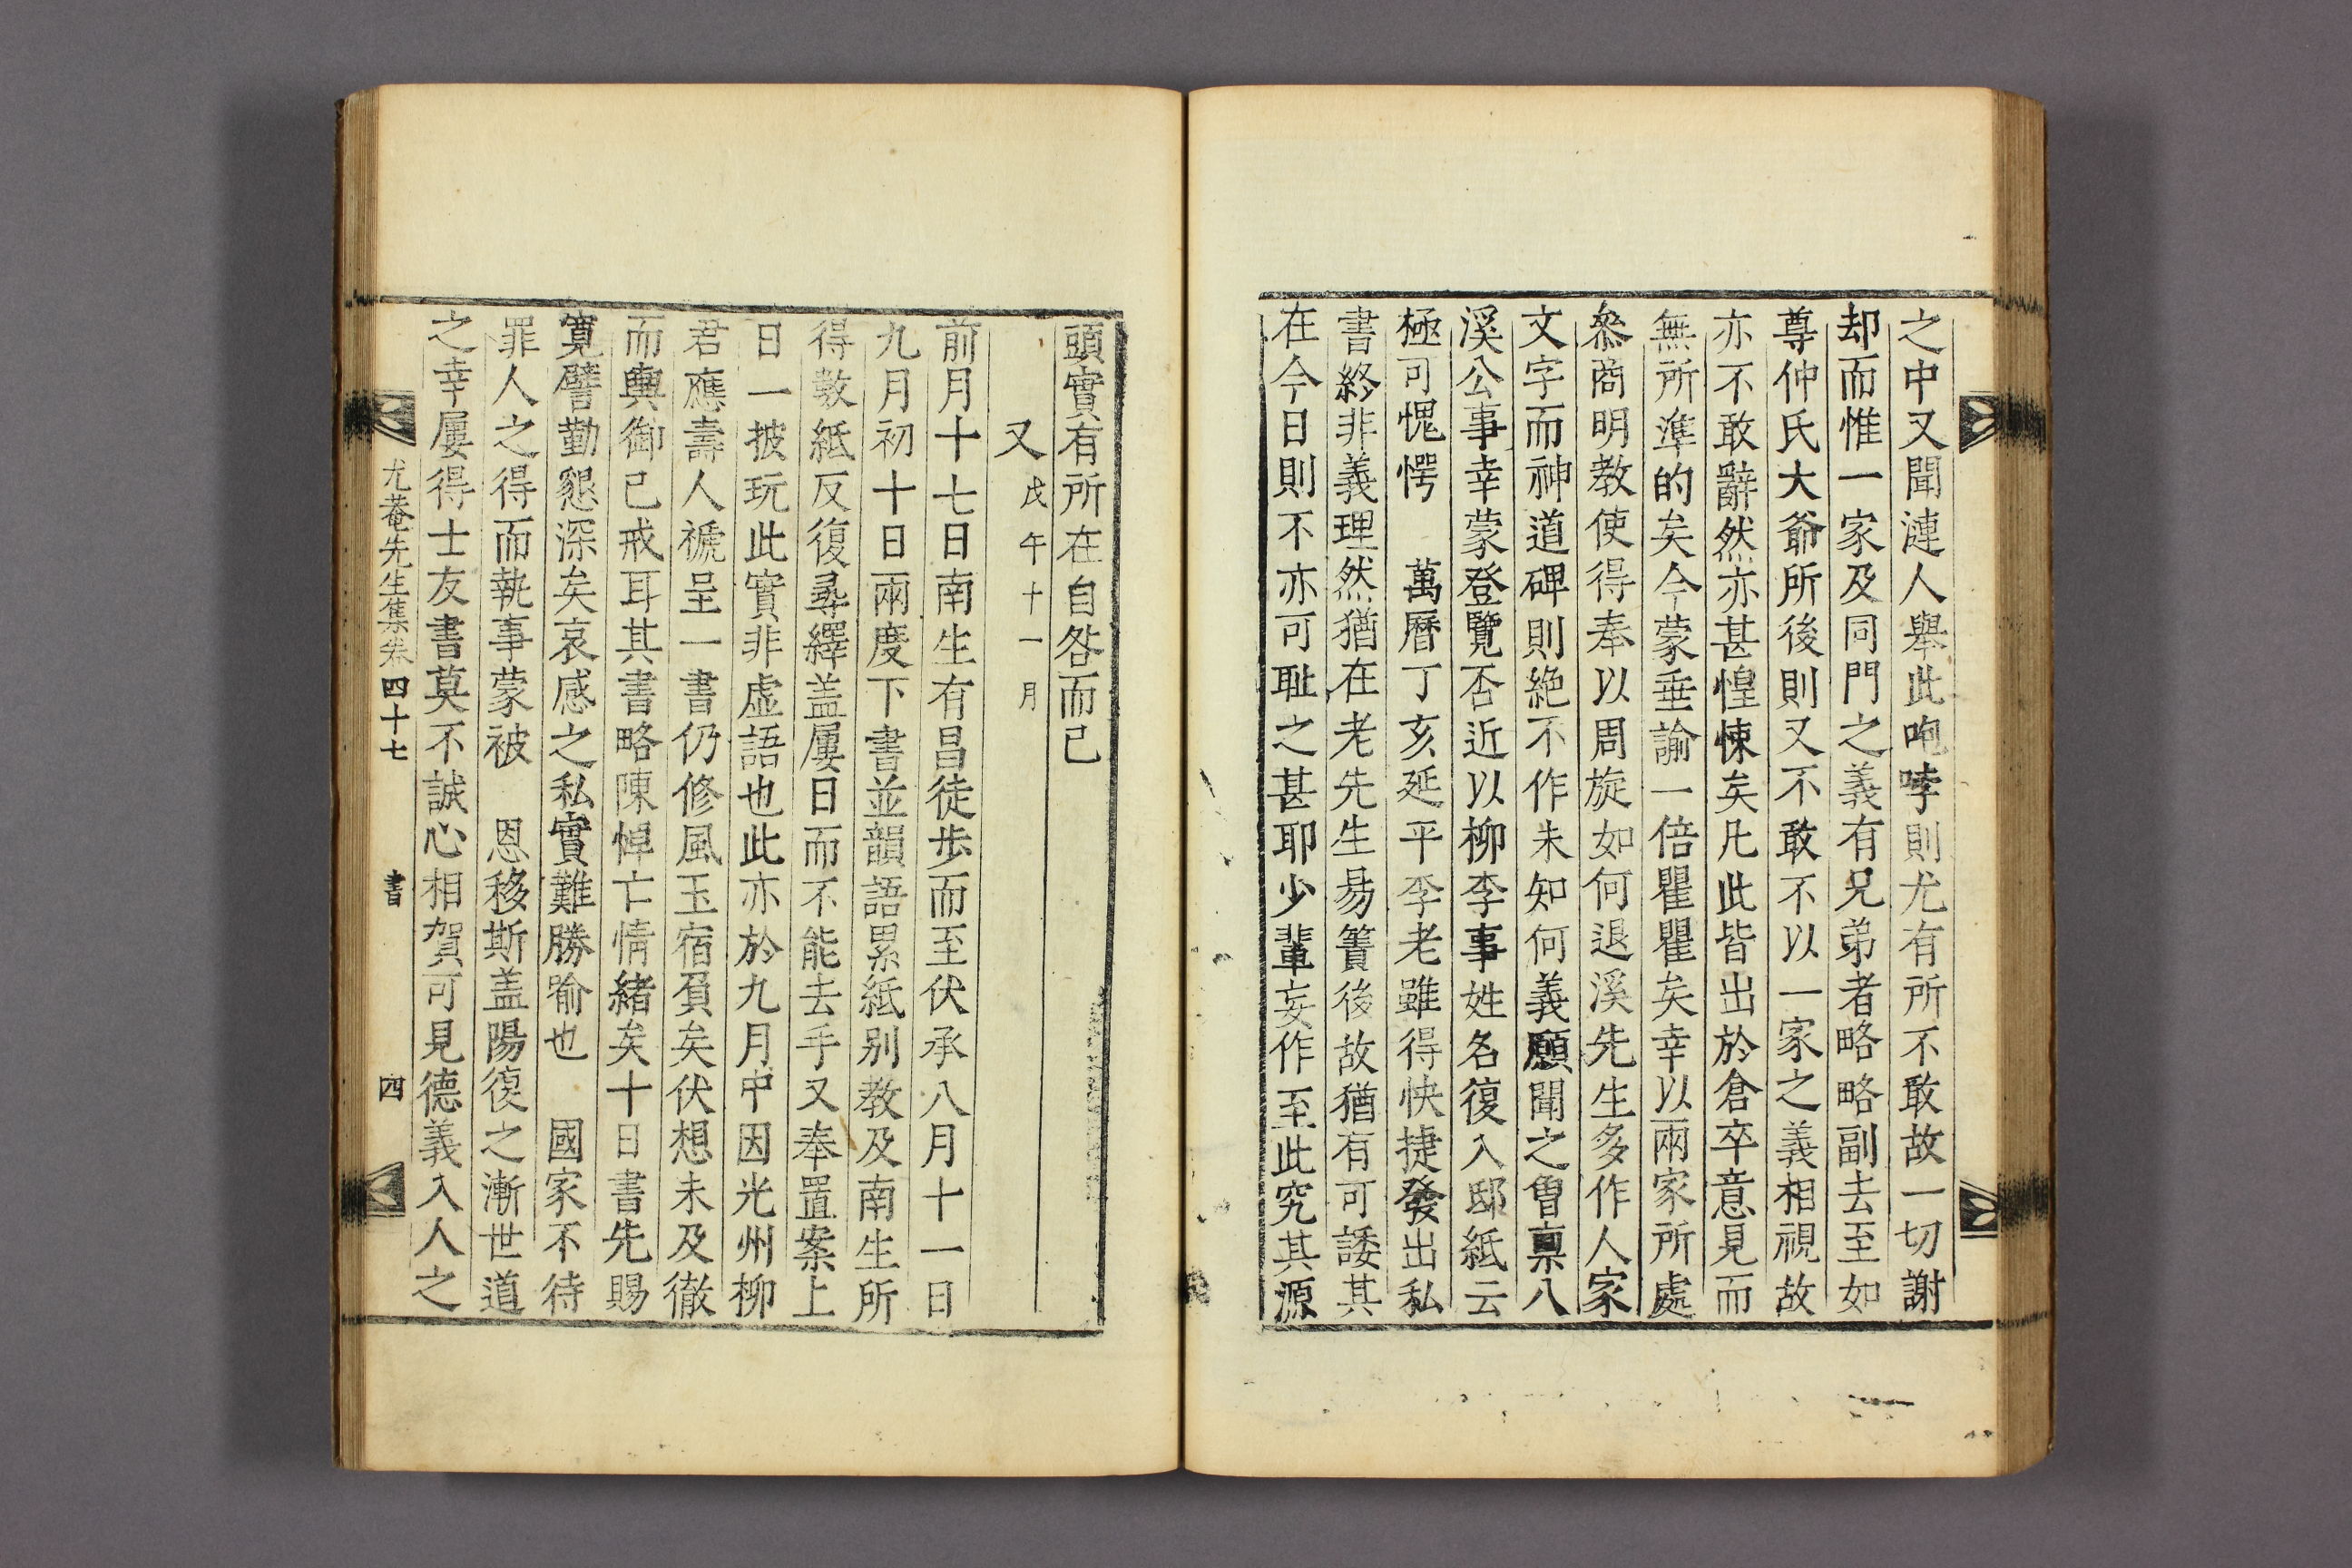 之中又聞漣人舉此咆哮則尤有所不敢故一切謝
却而惟一家及同門之義有兄弟者略略副去至如
尊仲氏大爺所後則又不敢不以一家之義相視故
亦不敢辭然亦甚惶悚矣凡此皆出於倉卒意見而
無所準的矣今蒙垂諭一倍瞿瞿矣幸以兩家所處
叅商明教使得奉以周旋如何退溪先生多作人家
文字而神道碑則絶不作未知何義願聞之曾稟八
溪公事幸蒙登覽否近以柳李事姓名復入邸紙云
極可愧愕 萬曆丁亥延平李老雖得快捷發出私
書終非義理然猶在老先生易簀後故猶有可諉其
在今日則不亦可耻之甚耶少輩妄作至此究其源
頭實有所在自咎而已
又 戊午十一月
前月十七日南生有昌徒步而至伏承八月十一日
九月初十日兩度下書並韻語累紙别教及南生所
得教紙反復尋繹盖屢日而不能去手又奉置案上
日一披玩此實非虛語也此亦於九月中因光州柳
君應壽人褫呈一書仍修風玉宿負矣伏想未及徹
而輿御已戒耳其書略陳悼亡情緖矣十日書先賜
寬譬勤懇深矣哀感之私實難勝喻也 國家不待
罪人之得而執事蒙被 恩移斯盖陽復之漸世道
之幸屢得士友書莫不誠心相賀可見德義入人之
尤菴先生集卷四十七 書 四